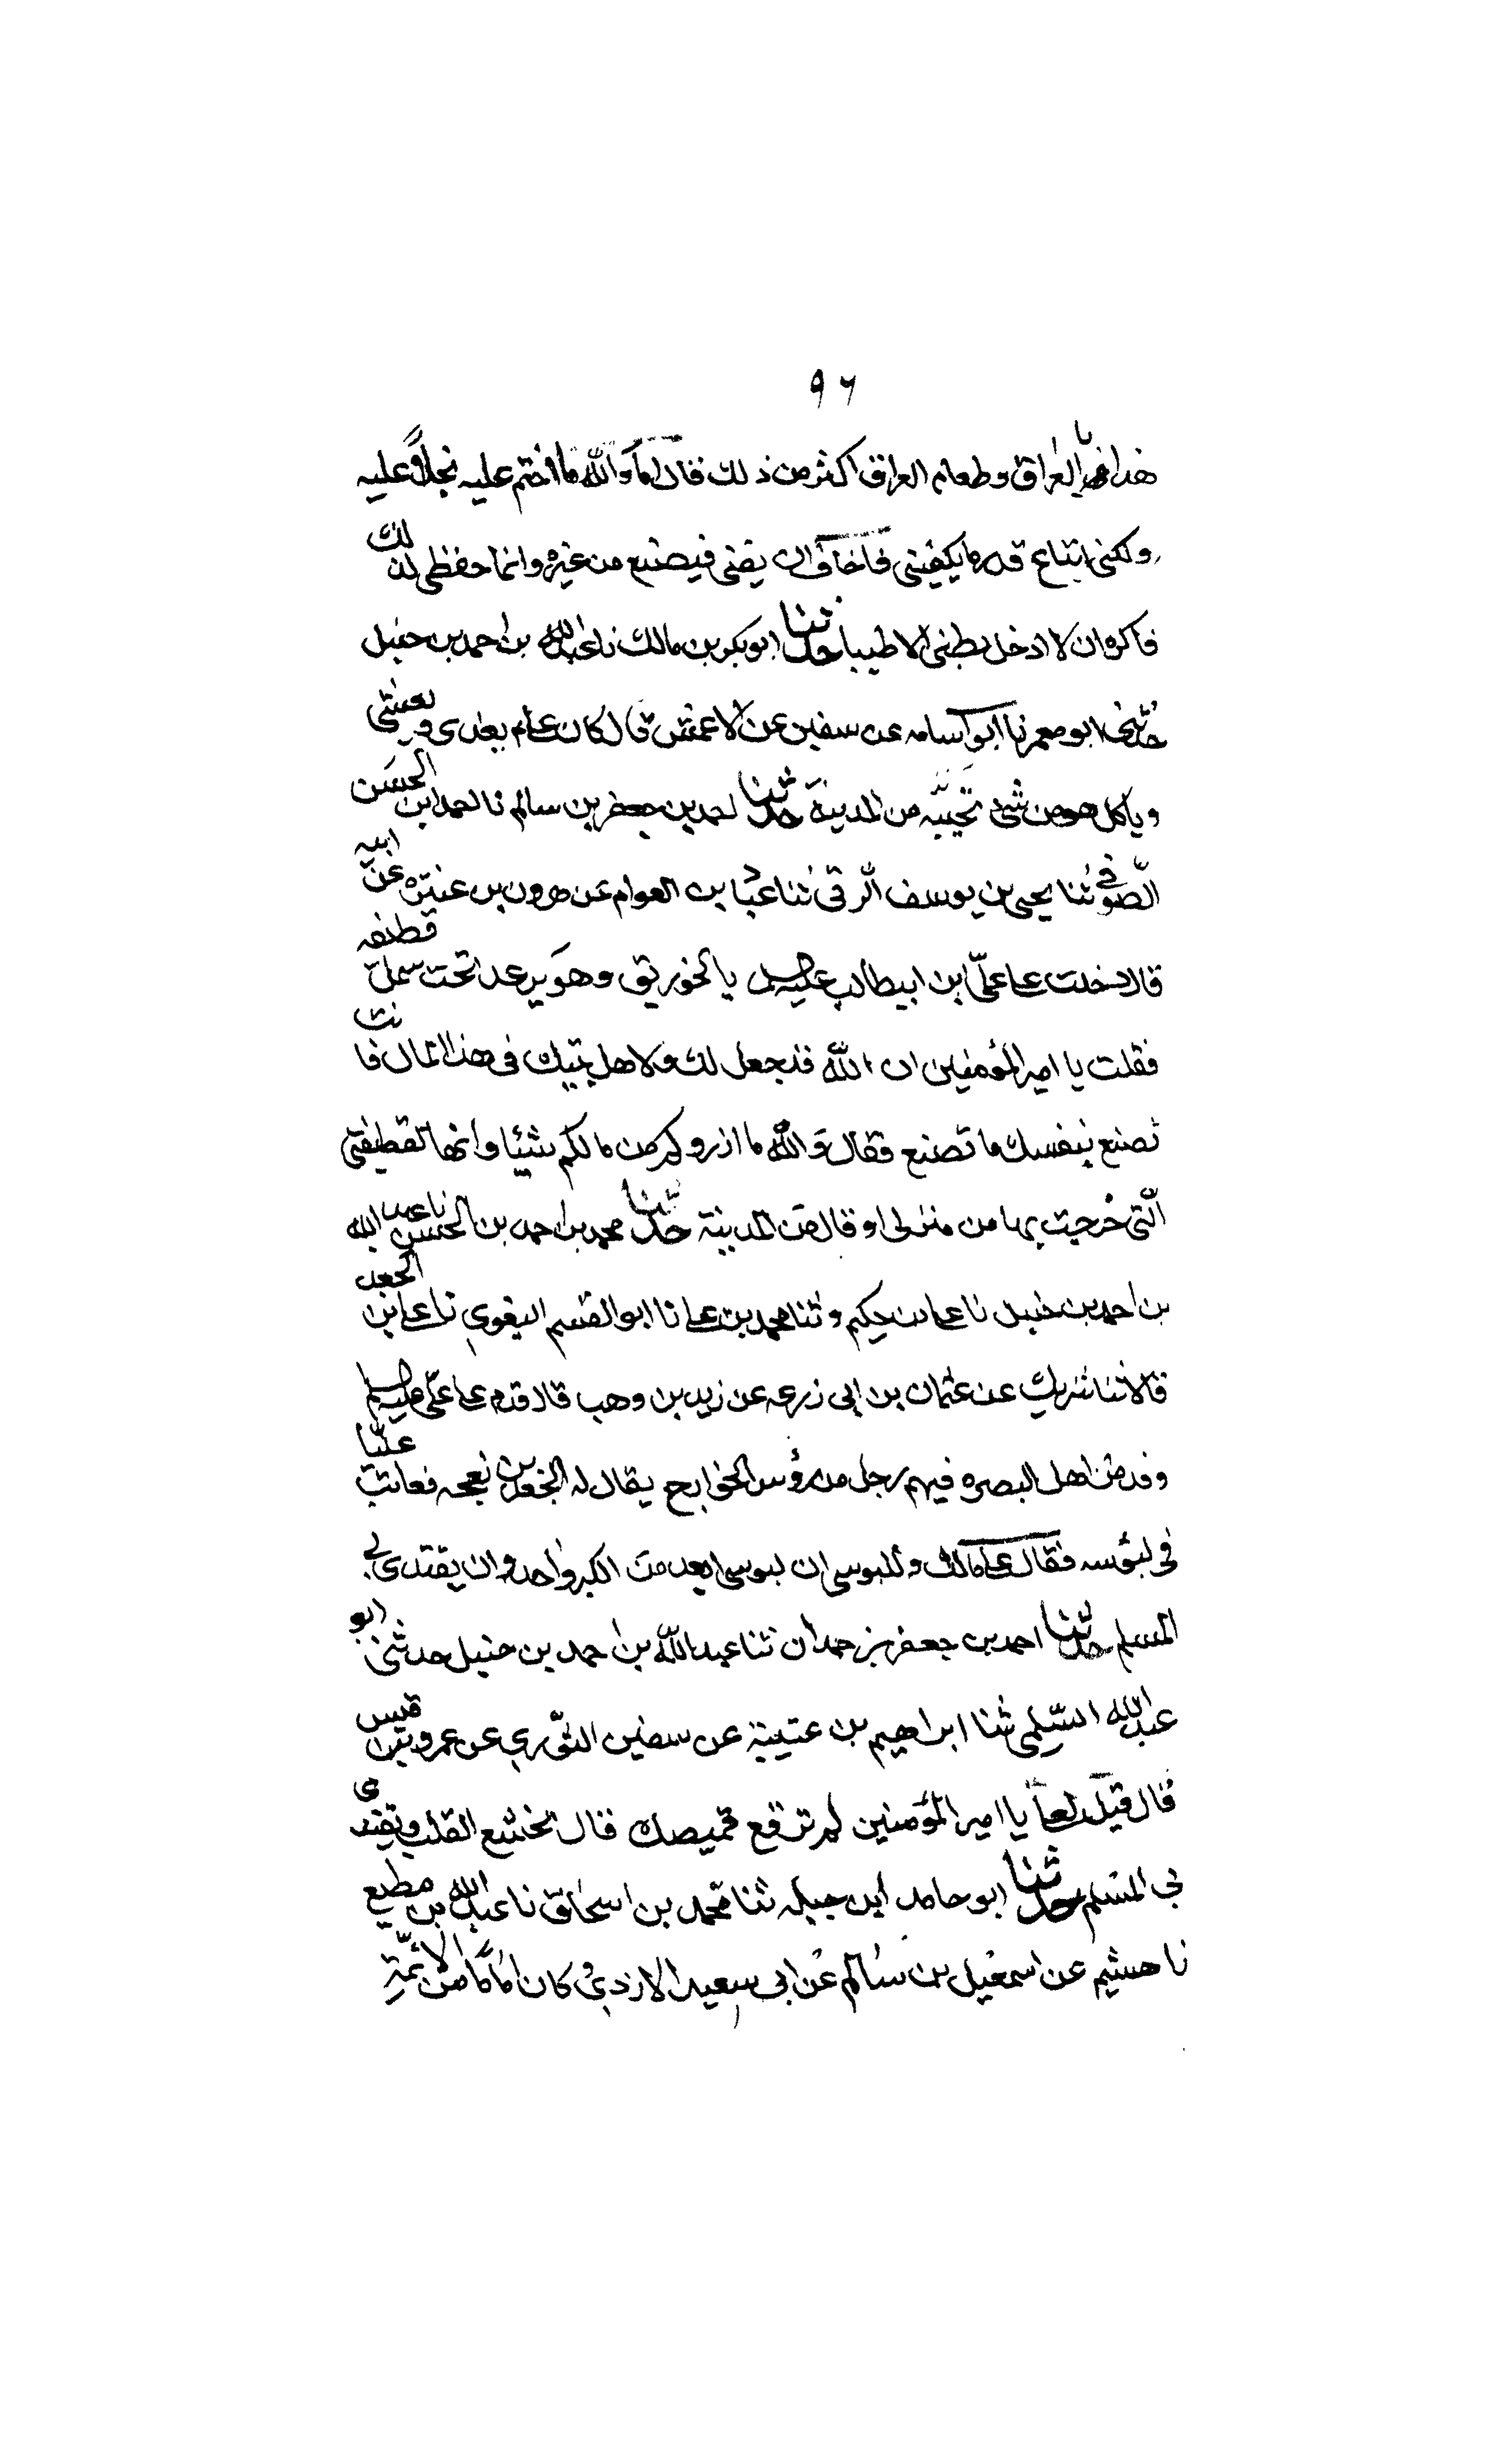 ٩٦
هذا بالعراق وطعام العراق اكثر من ذلك قال اما والله ما اختم عليه بخلاً عليه
ولكني ابتاع قدر ما يكفيني فاخاف ان يفنى فيصنع من غيره وانما حفظى لذلك
فاكره ان لا ادخل بطنى الا طيبا حدثنا ابو بكر بن مالك نا عبد الله بن احمد بن حنبل
حدثنى ابو معمر نا ابو اسامه عن سفين عن الاعمش قال كان على يغدى ويعشى
وياكل هو من شئ يجيئه من المدينة حدثنا احمد بن جعفر بن سالم نا احمد ابن الحسن
الصوفى ثنا يحيى بن يوسف الرقى ثنا عباد بن العوام عن هرون بن عنتره عن ابيه
قال دخلت على على ابن ابيطالب بالخورنق وهو يرعد تحت سمل قطيفه
فقلت يا امير المؤمنين ان الله قد جعل لك ولاهل بيتك فى هذا المال فانت
تصنع بنفسك ما تصنع فقال والله ما ازروكم من مالكم شيئا وانها لقطيفتى
التى خرجت بها من منزلى او قال من المدينة حدثنا محمد بن احمد بن الحسن نا عبد الله
بن احمد بن حنبل نا على بن حكيم وثنا محمد بن على نا ابو القسم البغوى نا على بن الجعد
قالا ثنا شريك عن عثمان بن ابى زرعه عن زيد بن وهب قال قدم على على
وفد من اهل البصره فيهم رجل من رؤس الخوارج يقال له الجعد بن نعجه فعاتب عليًا
فى لبؤسه فقال على مالك وللبوسى ان لبوسى ابعد من الكبر واجدر ان يقتدى بى
المسلم حدثنا احمد بن جعفر بن حمدان ثنا عبد الله بن احمد بن حنبل حدثنى ابو
عبد الله السلمى ثنا ابراهيم بن عتيبة عن سفين الثورى عن عمرو بن قيس
قال قيل لعلى يا امير المؤمنين لم ترقع قميصك قال يخشع القلب ويقتدى
بى المسلم حدثنا ابو حامد ابن جبله ثنا محمد بن اسحاق نا عبد الله بن مطيع
نا هشيم عن اسمعيل بن سالم عن ابى سعيد الازدى وكان امامًا من الائمة